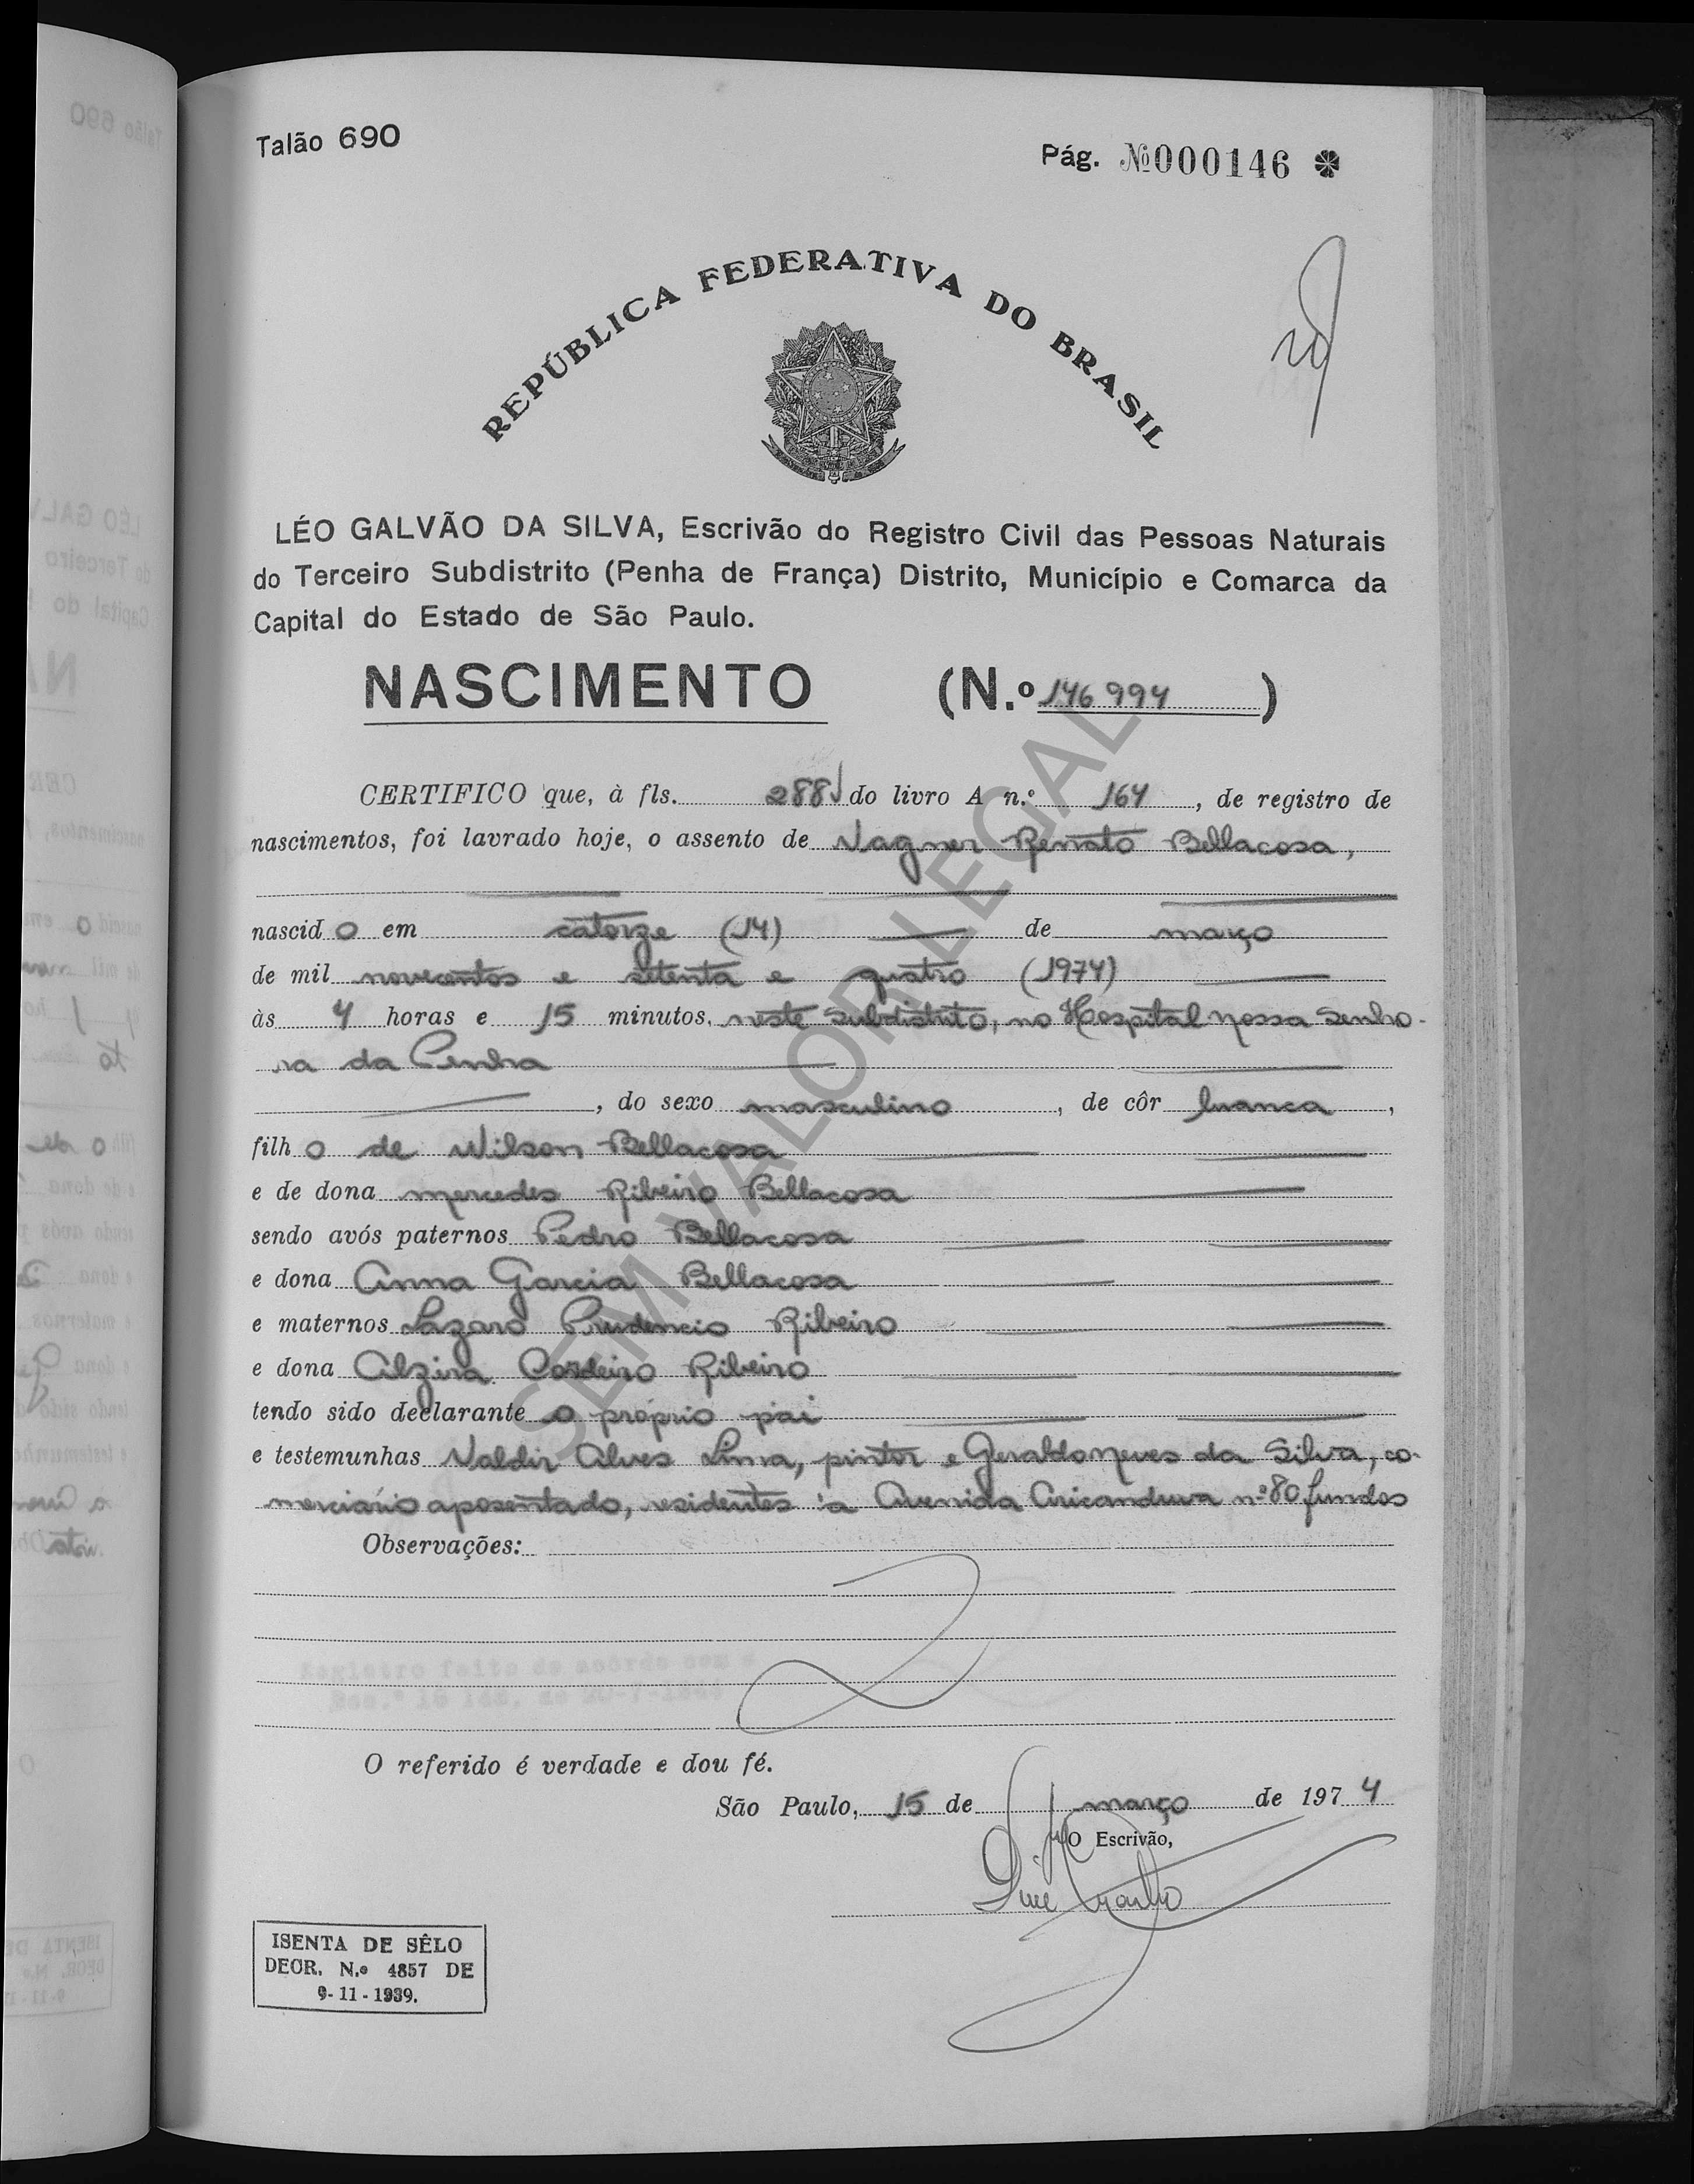 Talão 690
Pág. №000146
REPÚBLICA FEDERATIVA DO BRASIL
LÉO GALVÃO DA SILVA, Escrivão do Registro Civil das Pessoas Naturais
do Terceiro Subdistrito (Penha de França) Distrito, Município e Comarca da
Capital do Estado de São Paulo.
NASCIMENTO (N.º 146 994)
CERTIFICO que, à fls. 288 do livro A n.º 164, de registro de
nascimentos, foi lavrado hoje, o assento de Vagner Renato Bellacosa,
nascido em catorze (14) de março
de mil novecentos e setenta e quatro (1974)
às 4 horas e 15 minutos, neste subdistrito, no Hospital nossa Senho-
ra da Penha
, do sexo masculino, de côr branca,
filho de Wilson Bellacosa
e de dona mercedes Ribeiro Bellacosa
sendo avós paternos Pedro Bellacosa
e dona Anna Garcia Bellacosa
e maternos Lazaro Prudencio Ribeiro
e dona Alzira Cordeiro Ribeiro
tendo sido declarante o próprio pai
e testemunhas Valdir Alves Lima, pintor e Geraldo neves da Silva, co-
merciário aposentado, residentes à Avenida Aricanduva nº 80 fundos
Observações:
O referido é verdade e dou fé.
São Paulo, 15 de março de 1974
O Escrivão,
ISENTA DE SÊLO
DECR. N.º 4857 DE
9-11-1939.
SEM VALOR LEGAL